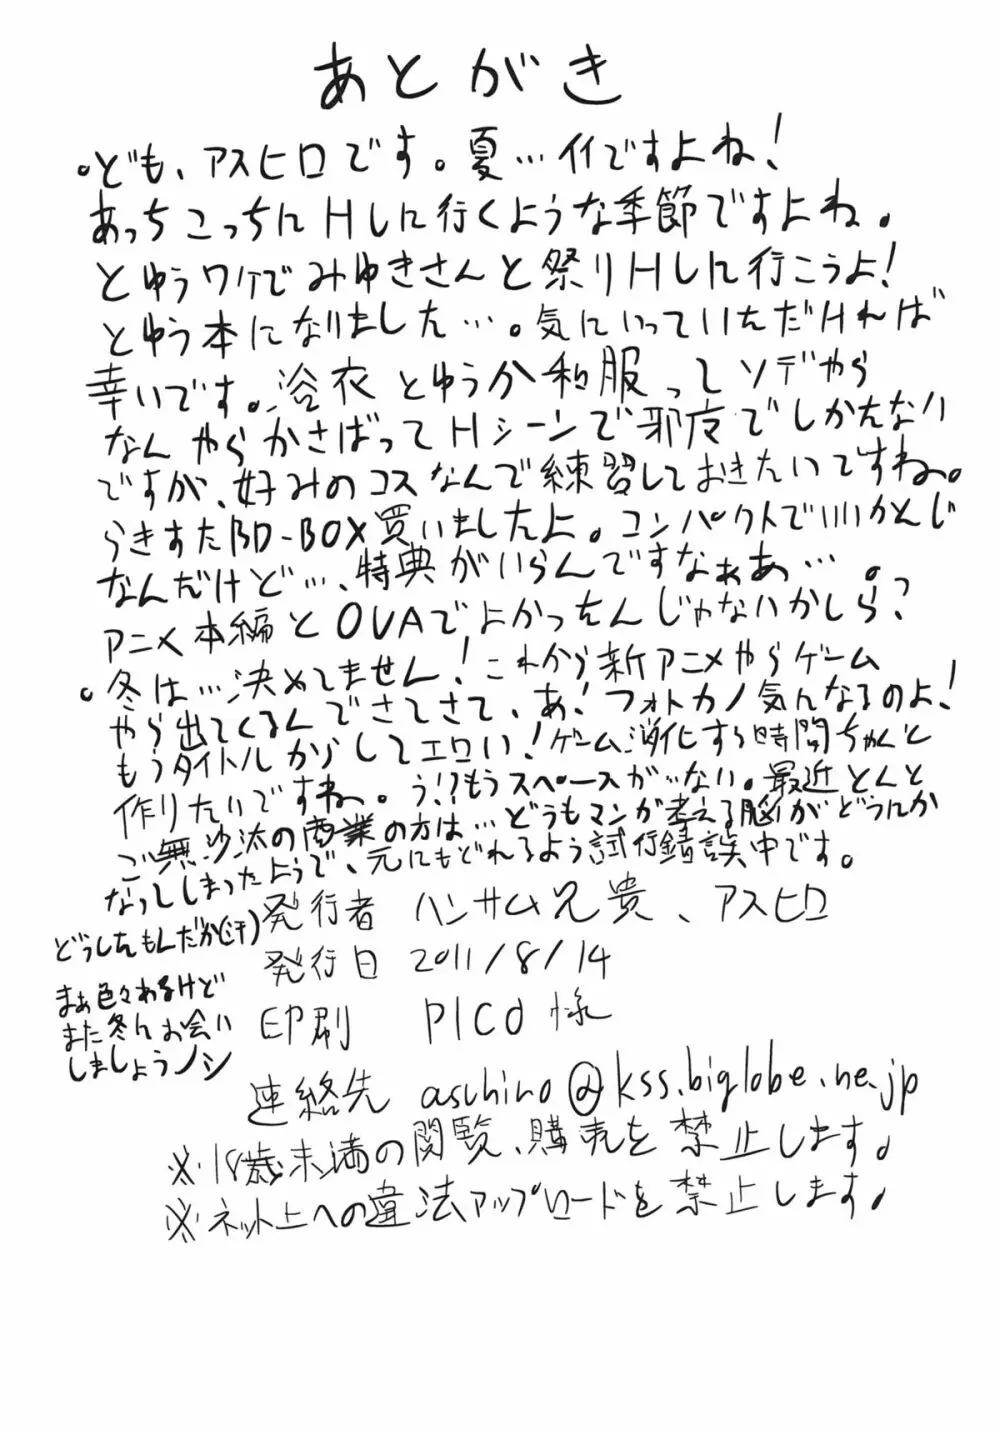 あとがき
。ども、アスヒロです。夏…イイですよね!
あっちこっちにHしに行くような季節ですよね。
とゆうワケでみゆきさんと祭りHしに行こうよ!
とゆう本になりました…。気にいっていただければ
幸いです。浴衣とゆうか和服ってソデやら
なんやらかさばってHシーンで邪魔でしかたない
ですが、好みのコスなんで練習しておきたいですね。
らきすたBD-BOX買いましたよ。コンパクトでいいかんじ
なんだけど…、特典がいらんですなぁあ…。
アニメ本編とOVAでよかったんじゃないかしら?
。冬は…決めてません!これから新アニメやらゲーム
やら出てくるんでさてさて、あ!フォトカノ気になるのよ!
もうタイトルからしてエロい!ゲーム消化する時間ちゃんと
作りたいですね。う!?もうスペースが…ない。最近とんと
ご無沙汰の商業の方は…どうもマンガ考える脳がどうにか
なってしまったようで、元にもどれるよう試行錯誤中です。
どうしたもんだか(汗)
まぁ色々あるけど
また冬にお会い
しましょうノシ
発行者 ハンサム兄貴、アスヒロ
発行日 2011/8/14
印刷 PICO様
連絡先 aschiro@kss.biglobe.ne.jp
※18歳未満の閲覧、購売を禁止します。
※ネット上への違法アップロードを禁止します。